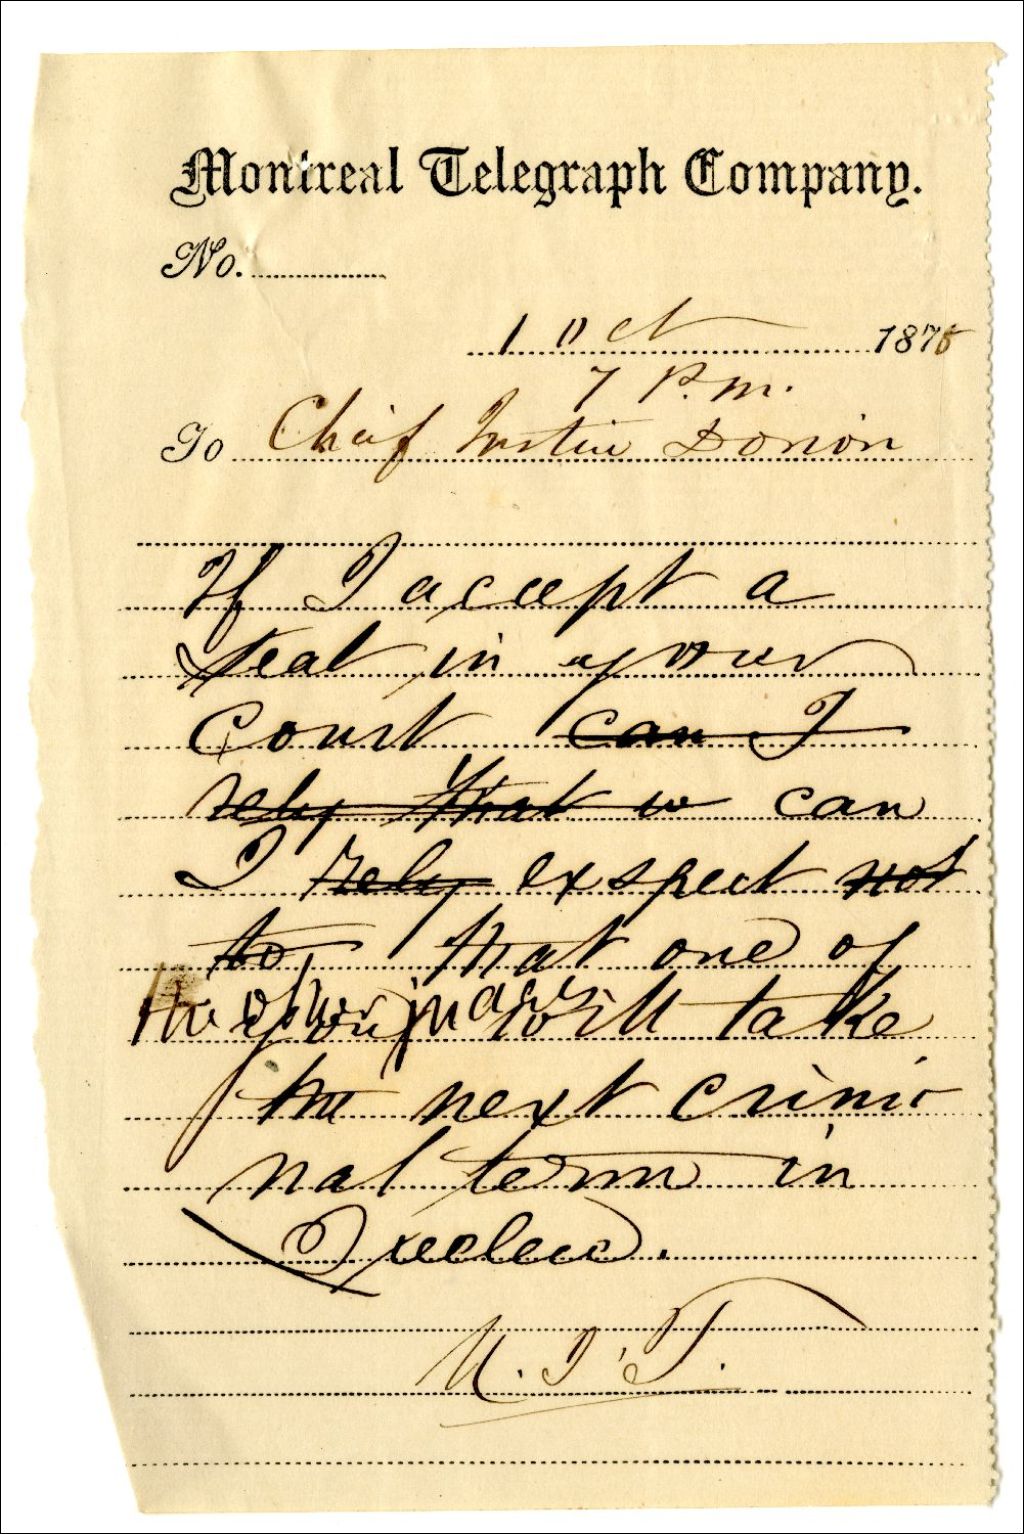 Montreal Telegraph Company.
No.
1 Oct 1875
7 P.m.
To Cheif Justice Dorion
If I accept a
seat in your
Court can I
rely that w can
I rely expect not
to that one of
the other judges will take
the next crimi
nal term in
Quebec.
U. J. T.